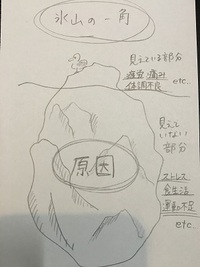 氷山の一角
見えている部分
疲労・痛み
体調不良
etc..
見えて
いない
部分
原因
ストレス
食生活
運動不足
etc..